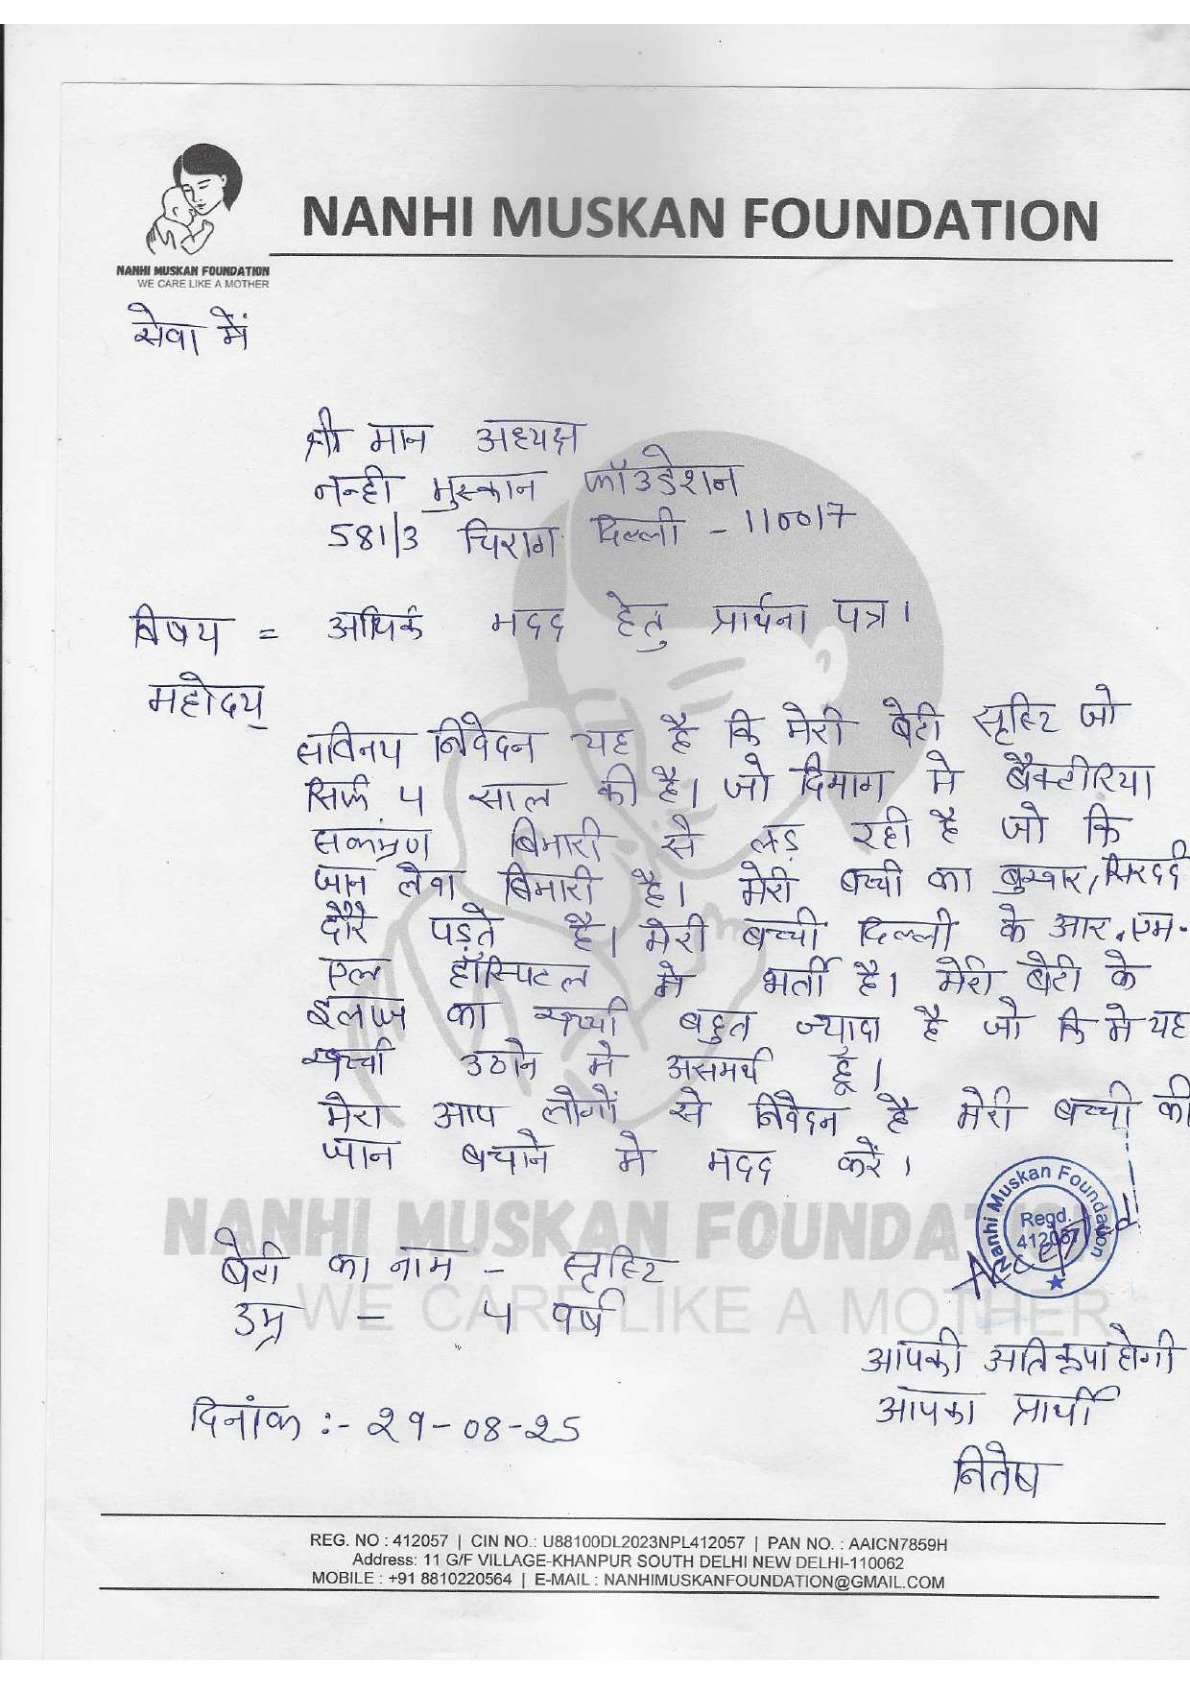 NANHI MUSKAN FOUNDATION
NANHI MUSKAN FOUNDATION
WE CARE LIKE A MOTHER
सेवा में
श्री मान अध्यक्ष
नन्ही मुस्कान फॉउडेशन
581/3 चिराग दिल्ली - 110017
विषय = आर्थिक मदद हेतु प्रार्थना पत्र।
महोदय्
सविनय निवेदन यह है कि मेरी बेटी सृष्टि जो
सिर्फ 4 साल की है। जो दिमाग मे बैक्टीरिया
सक्रंमण बिमारी से लड़ रही है जो कि
जान लेवा बिमारी है। मेरी बच्ची का बुखार, सिरदर्द
दौरे पड़ते है। मेरी बच्ची दिल्ली के आर. एम.
एल हॉस्पिटल मे भर्ती है। मेरी बेटी के
इलाज का खर्च्चा बहुत ज्यादा है जो कि मे यह
खर्च्चा उठाने मे असमर्थ हूँ।
मेरा आप लोगों से निवेदन है मेरी बच्ची की
जान बचाने मे मदद करें।
NANHI MUSKAN FOUNDA
WE CARE LIKE A MOTHER
Nanhi Muskan Foundation
Regd.
412057
Accepted
बेटी का नाम - सृष्टि
उम्र - 4 वर्ष
आपकी अति कृपा होगी
आपका प्रार्थी
नितेष
दिनांक :- 29-08-25
REG. NO : 412057 | CIN NO.: U88100DL2023NPL412057 | PAN NO. : AAICN7859H
Address: 11 G/F VILLAGE-KHANPUR SOUTH DELHI NEW DELHI-110062
MOBILE : +91 8810220564 | E-MAIL : NANHIMUSKANFOUNDATION@GMAIL.COM